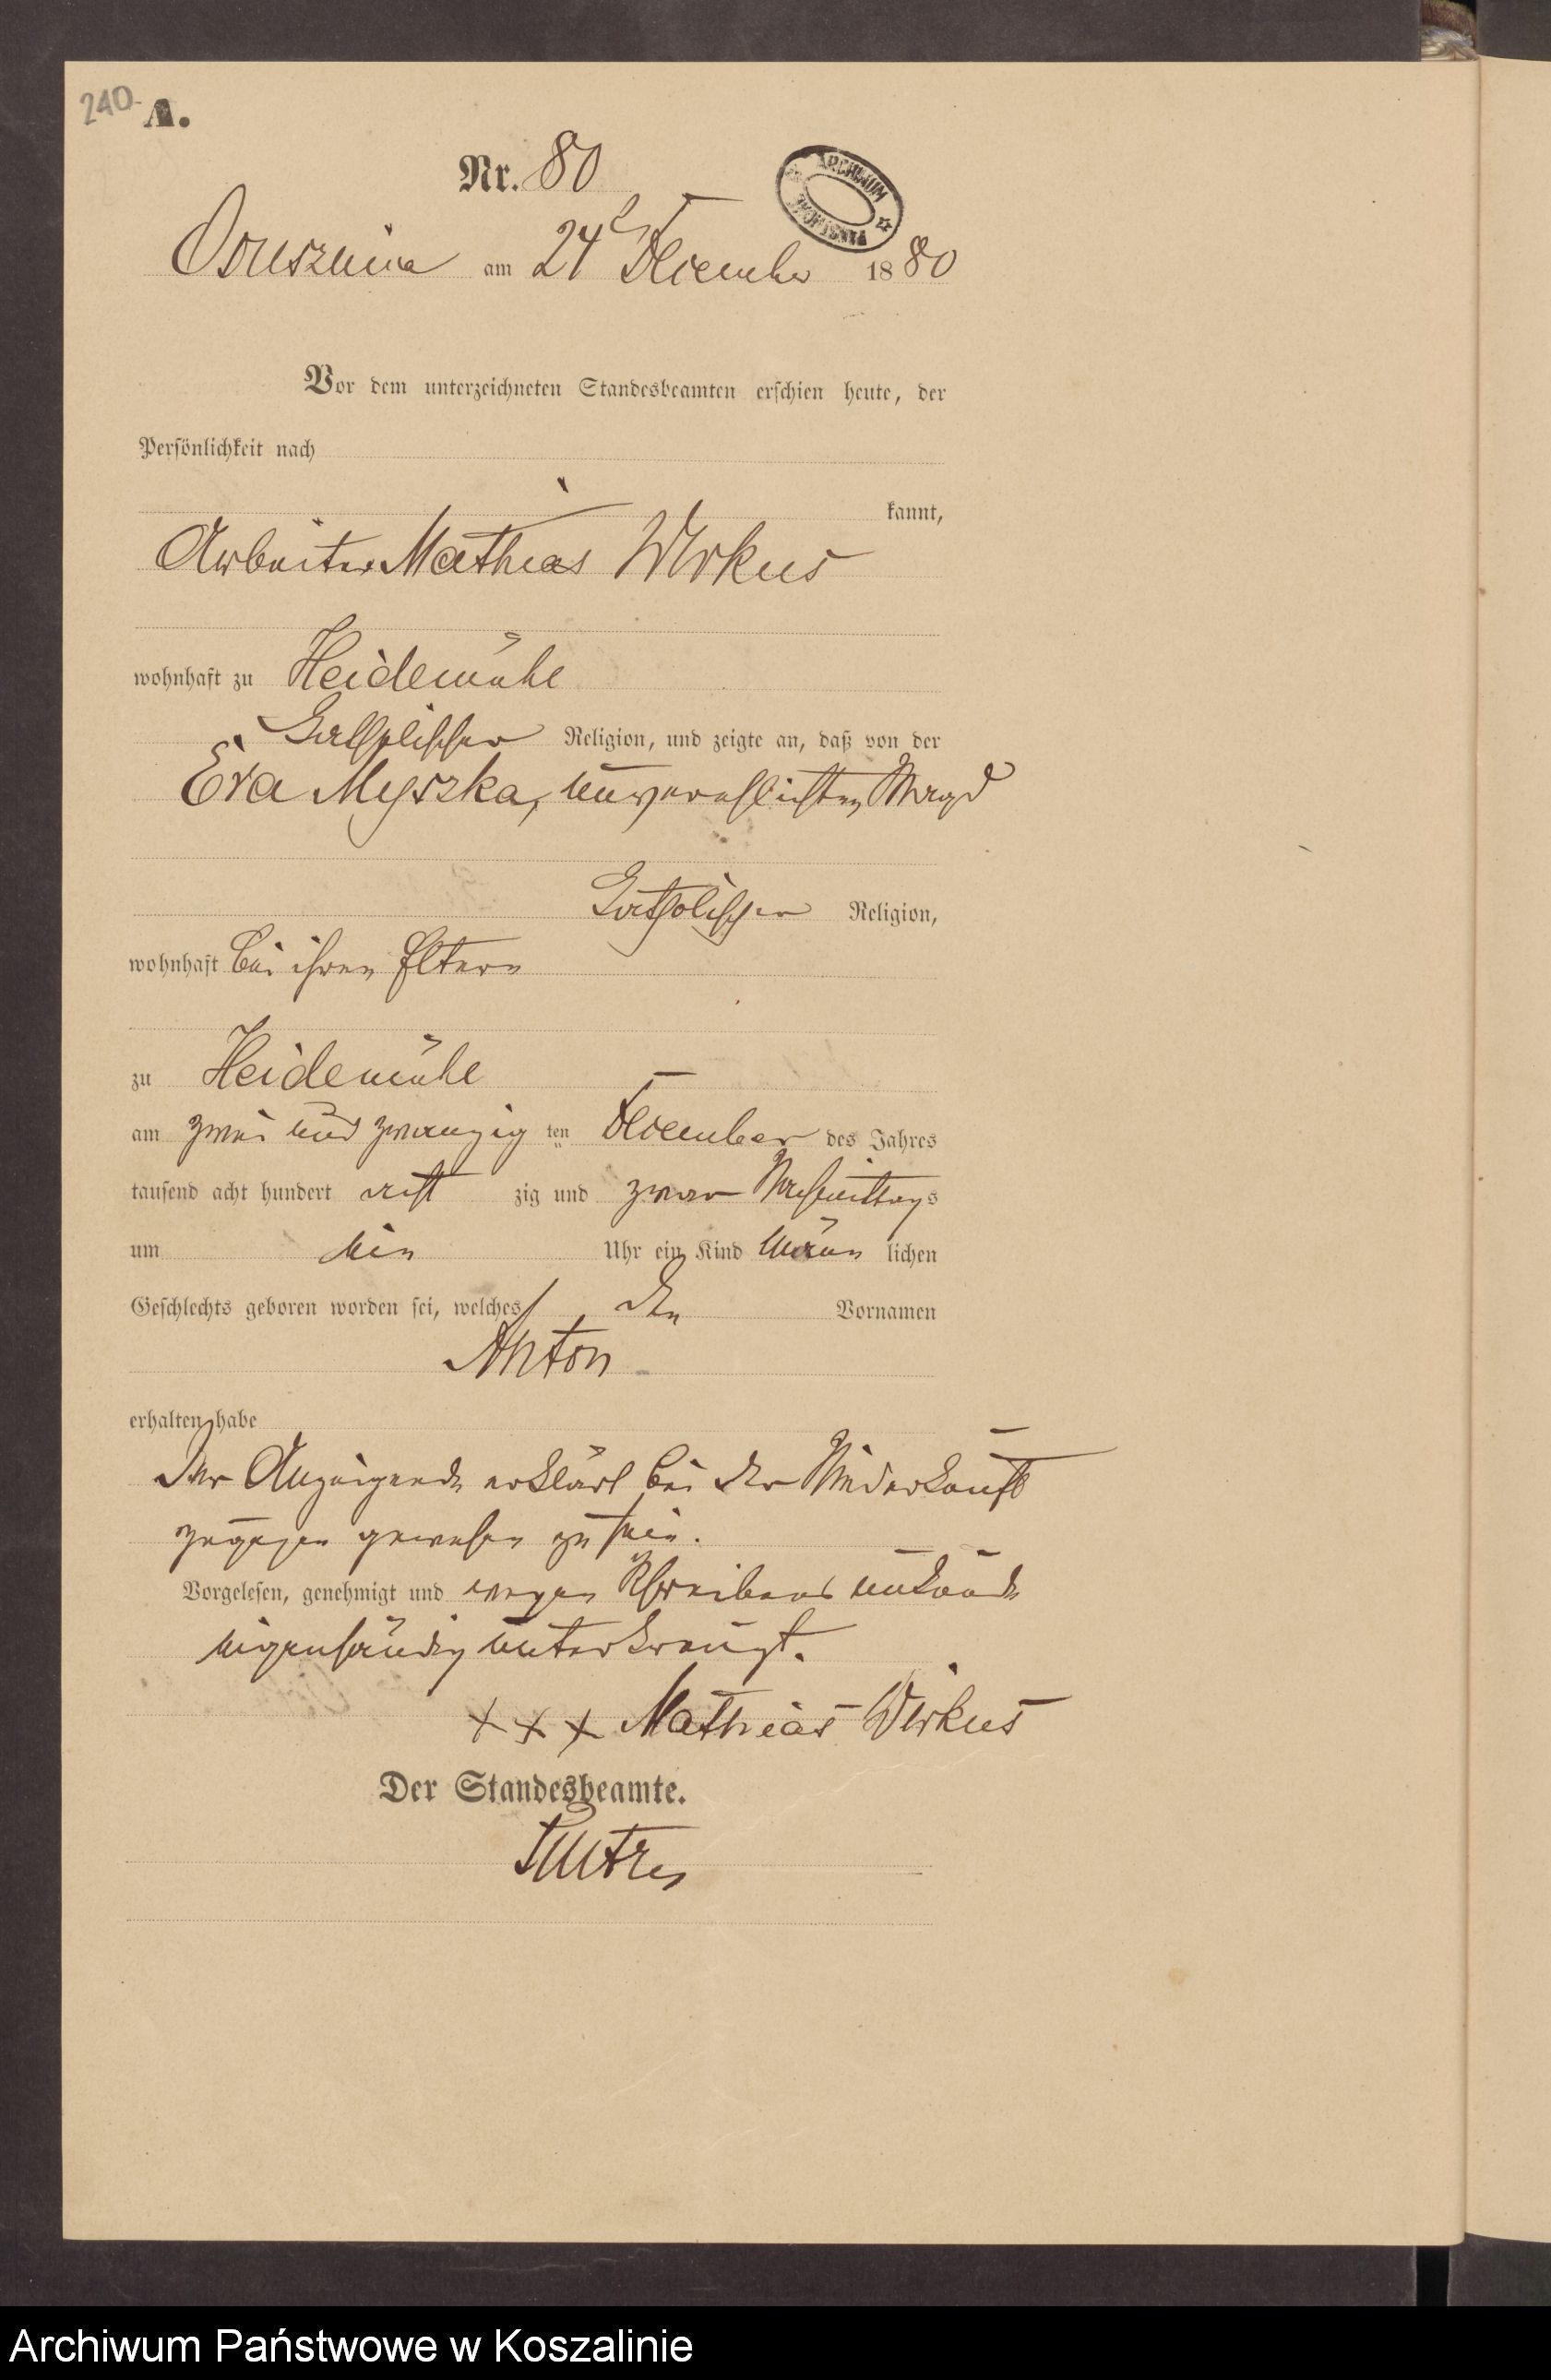 240.
A.
Nr. 80
ARCHIWUM PAŃSTWOWE
am 24 December 1880
Vor dem unterzeichneten Standesbeamten erschien heute, der
Persönlichkeit nach
kannt,
Arbeiter Mathias Wirkus
wohnhaft zu Heidemühe
katholischer Religion, und zeigte an, daß von der
Eva Myszka, unverehlichten Magd
katholischer Religion,
wohnhaft bei ihren Eltern
zu Heidemühe
am zwei und zwanzig ten December des Jahres
tausend acht hundert acht zig und zwar Nachmittags
um ein Uhr ein Kind männ lichen
Geschlechts geboren worden sei, welches den Vornamen
Anton
erhalten habe
Der Anzeigende erklärt bei der Niederkunft
zugegen gewesen zu sein.
Vorgelesen, genehmigt und wegen Schreibens unkunde
eigenhändig unterkreuzt.
x x x Mathias Wirkus
Der Standesbeamte.
Archiwum Państwowe w Koszalinie